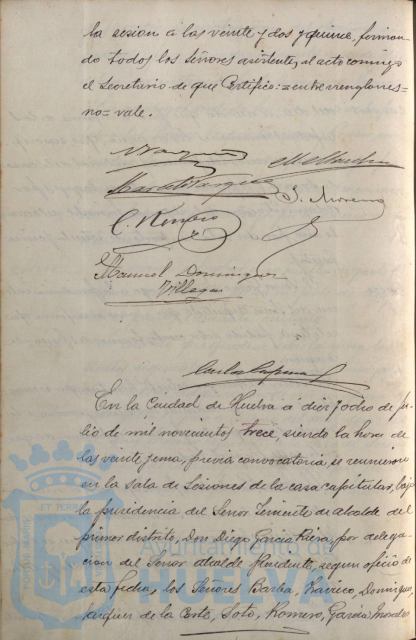 la sesion a las veinte y dos y quince, firman-
do todos los Señores asistentes, al acto conmigo
el Secretario de que Certifico:= entre renglones=
no= vale.
C. Romero
J. Moreno
Manuel Dominguez
Villegas
En la Ciudad de Huelva á diez y ocho de ju-
lio de mil novecientos trece, siendo la hora de
las veinte y una, previa convocatoria, se reunieron
en la sala de Sesiones de la casa capitular, bajo
la presidencia del Señor Teniente de alcalde del
primer distrito, Don Diego Garcia, por delega-
cion del Señor alcalde Presidente, segun oficio de
esta fecha, los Señores Barba, Dominguez,
Vazquez de la Corte, Soto, Romero, Garcia Morales
Ayuntamiento de
HUELVA